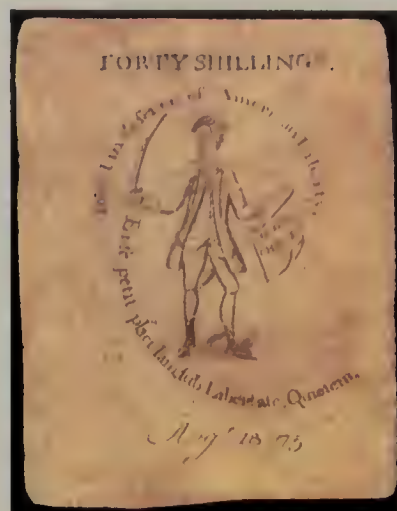 FORTY SHILLING.
in Defence of American Liberty.
Ense petit placidam sub Libertate, Quietem.
Augt 18 75